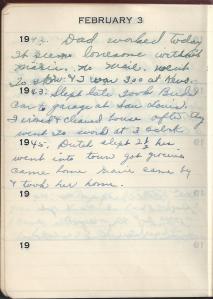 FEBRUARY 3
1942. Dad worked today
It seems lonesome without
no mail. went
To show & I won 300 at Keno.
1943. Slept late took Buick
Car to garage at San Luis.
I cleaned house after they
went to work at 3 oclock
1945. Dutch slept 2½ hrs.
went into town got groceries
came home same by
& took her home.
19
19